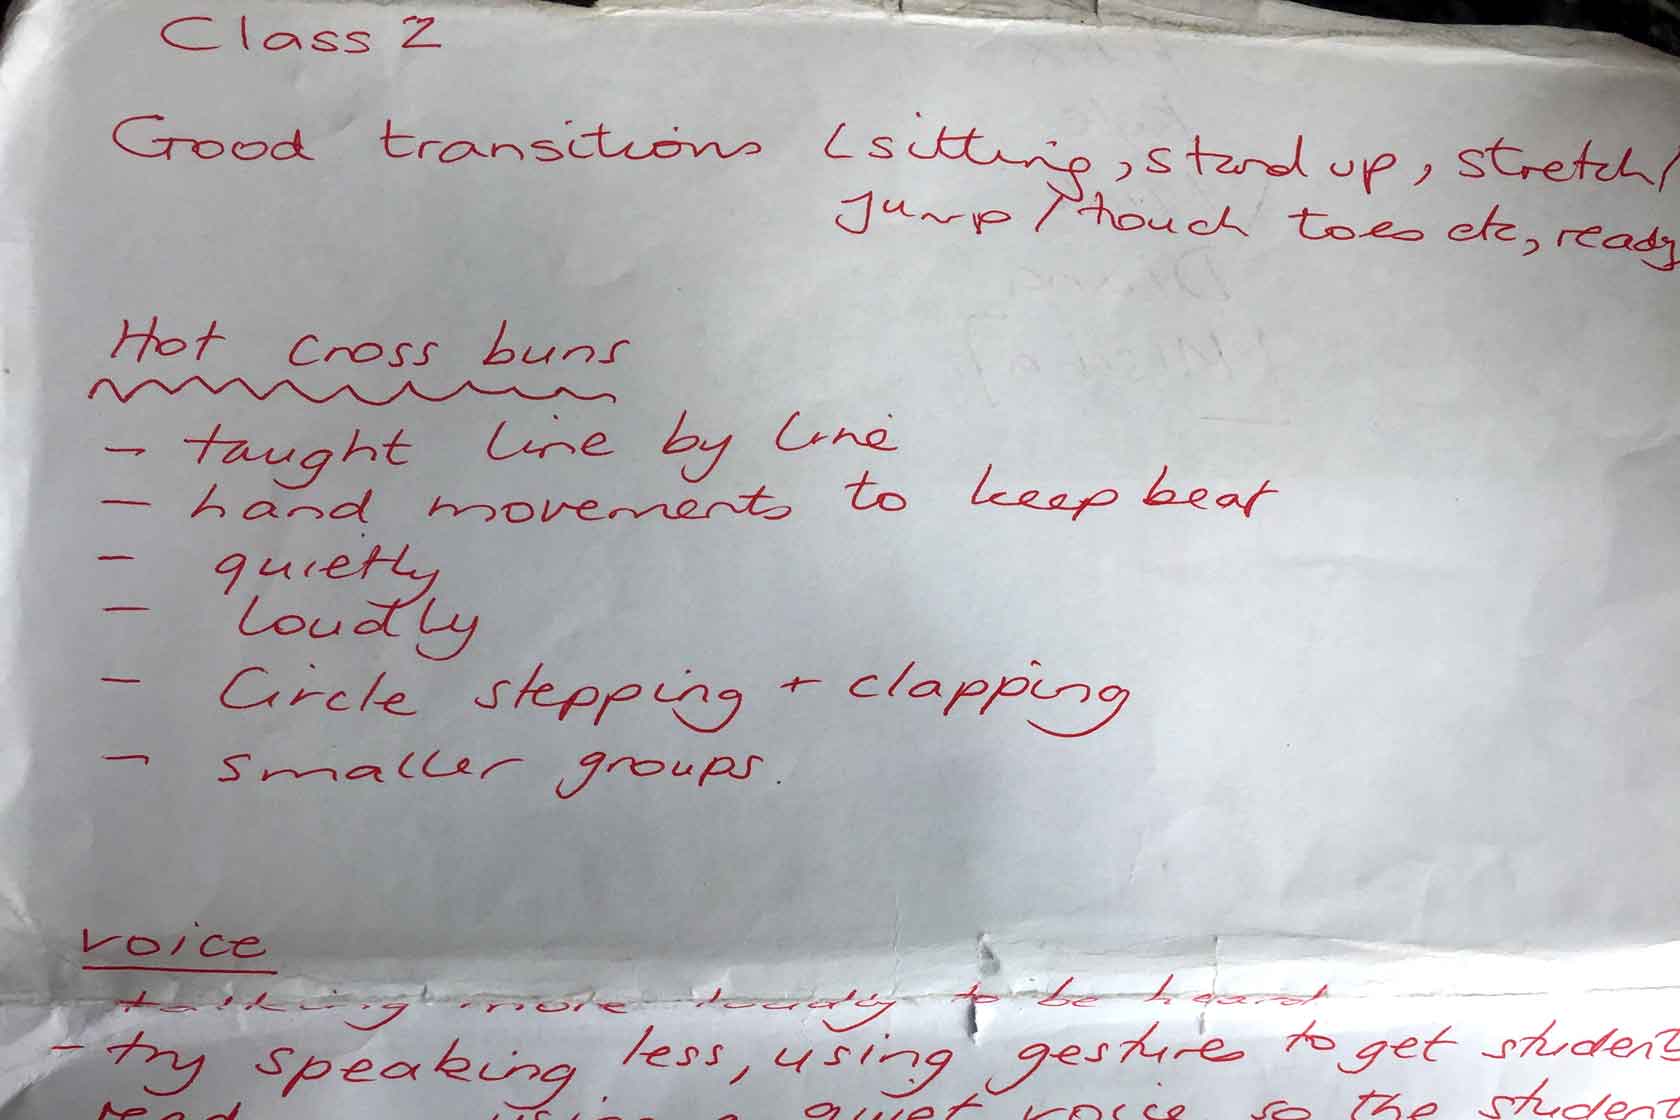 Class 2
Good transitions (sitting, stand up, stretch/
Jump / touch toes etc, ready
Hot cross buns
- taught line by line
- hand movements to keep beat
- quietly
- Loudly
- Circle stepping + clapping
- smaller groups.
voice
talking more loudly to be heard
- try speaking less, using gestures to get student
using a quiet voice so the student